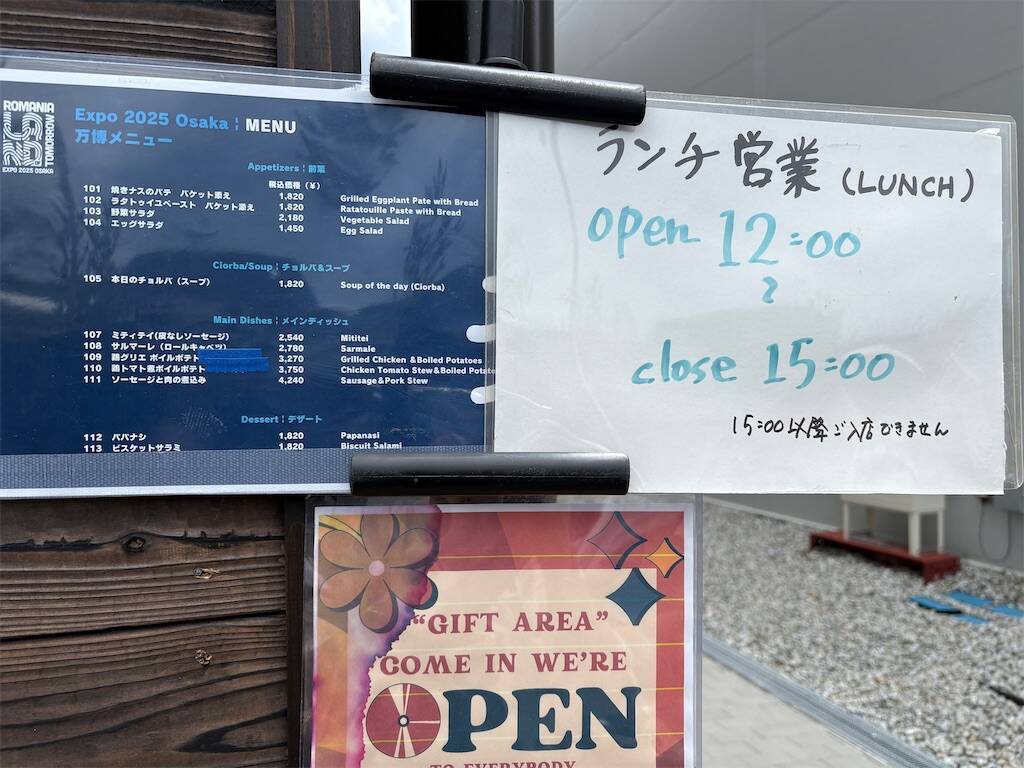 ROMANIA
TOMORROW
EXPO 2025 OSAKA
Expo 2025 Osaka ¦ MENU
万博メニュー
Appetizers ¦ 前菜
税込価格 (¥)
101 焼きナスのパテ バケット添え 1,820 Grilled Eggplant Pate with Bread
102 ラタトゥイユペースト バケット添え 1,820 Ratatouille Paste with Bread
103 野菜サラダ 2,180 Vegetable Salad
104 エッグサラダ 1,450 Egg Salad
Ciorba/Soup ¦ チョルバ&スープ
105 本日のチョルバ (スープ) 1,820 Soup of the day (Ciorba)
Main Dishes ¦ メインディッシュ
107 ミティティ(皮なしソーセージ) 2,540 Mititei
108 サルマーレ (ロールキャベツ) 2,780 Sarmale
109 鶏グリエ ボイルポテト 3,270 Grilled Chicken &Boiled Potatoes
110 鶏トマト煮ボイルポテト 3,750 Chicken Tomato Stew&Boiled Potato
111 ソーセージと肉の煮込み 4,240 Sausage&Pork Stew
Dessert ¦ デザート
112 パパナシ 1,820 Papanasi
113 ビスケットサラミ 1,820 Biscuit Salami
ランチ営業 (LUNCH)
open 12:00
~
close 15:00
15:00以降ご入店できません
"GIFT AREA"
COME IN WE'RE
OPEN
TO EVERYBODY